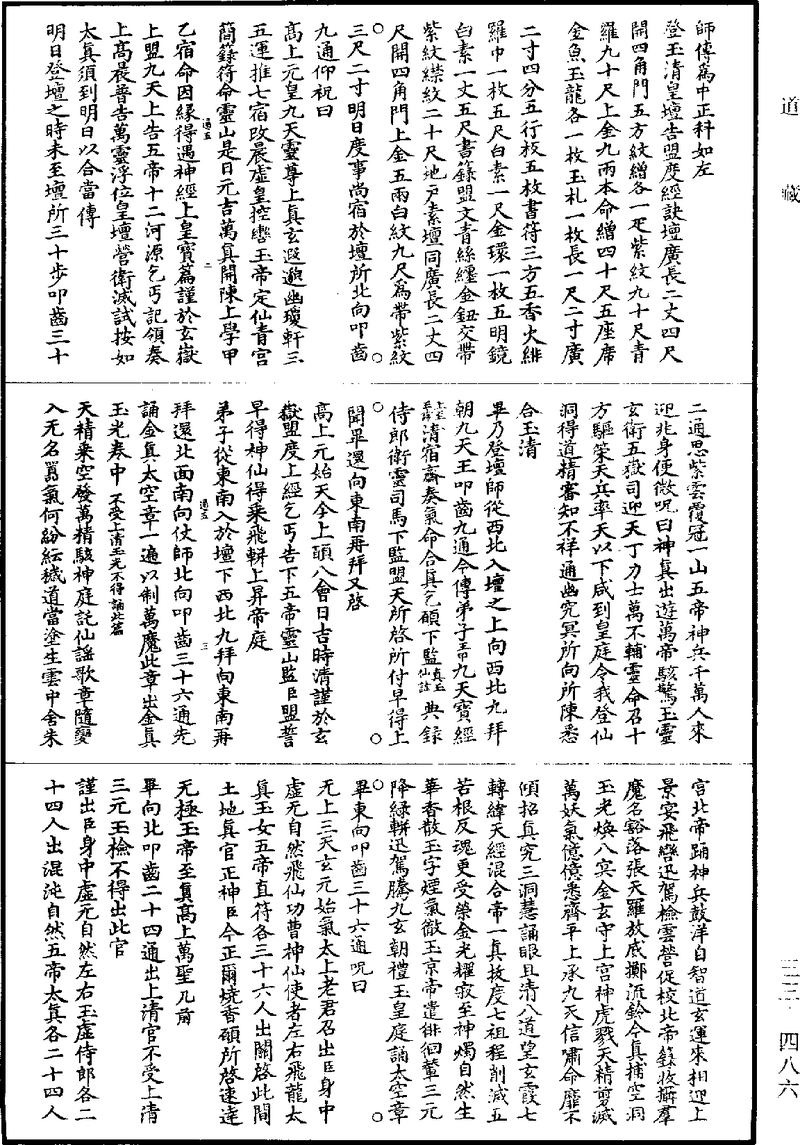 道藏
三三·四八六
師傳爲中正科如左
登玉清皇壇告盟度經訣壇廣長二丈四尺
開四角門五方紋繒各一疋紫紋九十尺青
羅九十尺上金九兩本命繒四十尺五座席
金魚玉龍各一枚玉札一枚長一尺二寸廣
二寸四分五行板五枚書符三方五香火緋
羅巾一枚五尺白素一尺金環一枚五明鏡
白素一丈五尺書籙盟文青絲纏金鈕交帶
紫紋㯹紋二十尺地户素壇同廣長二丈四
尺開四角門上金五兩白紋九尺爲帶紫紋
三尺二寸明日度事尚宿於壇所北向叩齒
九通仰祝曰
高上元皇九天靈尊上真玄遐邈幽瓊軒三
五運推七宿改晨虛皇控轡玉帝定仙青宮
簡籙符命靈山是日元吉萬真開陳上學甲
乙宿命因緣得遇神經上皇寶篇謹於玄嶽
上盟九天上告五帝十二河源乞丐記領奏
上高晨普告萬靈浮位皇壇營衛滅試按如
太真須到明日以合當傳
明日登壇之時未至壇所三十步叩齒三十
二通思紫雲覆冠一山五帝神兵千萬人來
迎兆身便微呪曰神真出遊萬帝駭驚玉靈
玄衛五嶽司迎天丁力士萬不輔靈命召十
方驅策天兵率天以下咸到皇庭令我登仙
洞得道精審知不祥通幽究冥所向所陳悉
合玉清
畢乃登壇師從西北入壇之上向西北九拜
朝九天王叩齒九通令傳弟子齎九天寶經
清宿齋奏氣命合真乞願下監典錄
侍郎衛靈司馬下監盟天所啓所付早得上
聞畢還向東南再拜又啓
高上元始天今上願八會日吉時清謹於玄
嶽盟度上經乞丐告下五帝靈山監臣盟誓
早得神仙得乘飛軿上昇帝庭
弟子從東南入於壇下西北九拜向東南再
拜還北面南向仗師北向叩齒三十六通先
誦金真太空章一遍以制萬魔此章出金真
玉光卷中不受上清玉光不得誦此篇
天精乘空發萬精駭神庭託仙謡歌章隨變
入无名暠氣何紛紜穢道當塗生雲中舍朱
宫北帝踊神兵鼓洋自智道玄運來相迎上
景安飛轡迅駕檢雲營促校北帝籙收攝羣
魔名豁落張天羅放威擲流鈴令真捕空洞
玉光煥八冥金玄守上宫神虎戮天精剪滅
萬妖氣億億悉齊平上承九天信肅命靡不
傾招真究三洞慧誦眼且清八道望玄霞七
轉緯天經混合帝一真拔度七祖程削滅五
苦根反魂更受榮金光耀寂至神燭自然生
華香散玉字煙氣徹玉京帝遣徘徊輦三元
降緑軿迅駕騰九玄朝禮玉皇庭誦太空章
畢東向叩齒三十六通呪曰
无上三天玄元始氣太上老君召出臣身中
虛无自然飛仙功曹神仙使者左右飛龍太
真玉女五帝直符各三十六人出關啓此間
土地真官正神臣今正爾燒香願所啓速達
无極玉帝至真高上萬聖几前
畢向北叩齒二十四通出上清官不受上清
三元玉檢不得出此官
謹出臣身中虛元自然左右玉虛侍郎各二
十四人出混沌自然五帝太真各二十四人